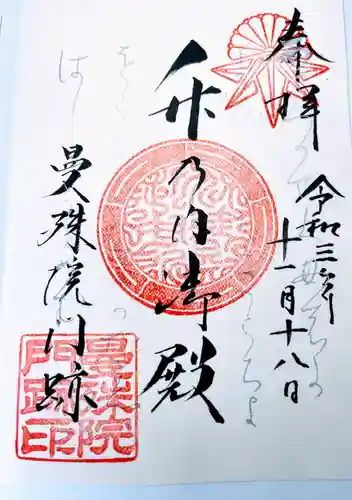 奉拝
令和三年
十一月十八日
竹乃内御殿
曼殊院门跡
曼殊院
門跡印